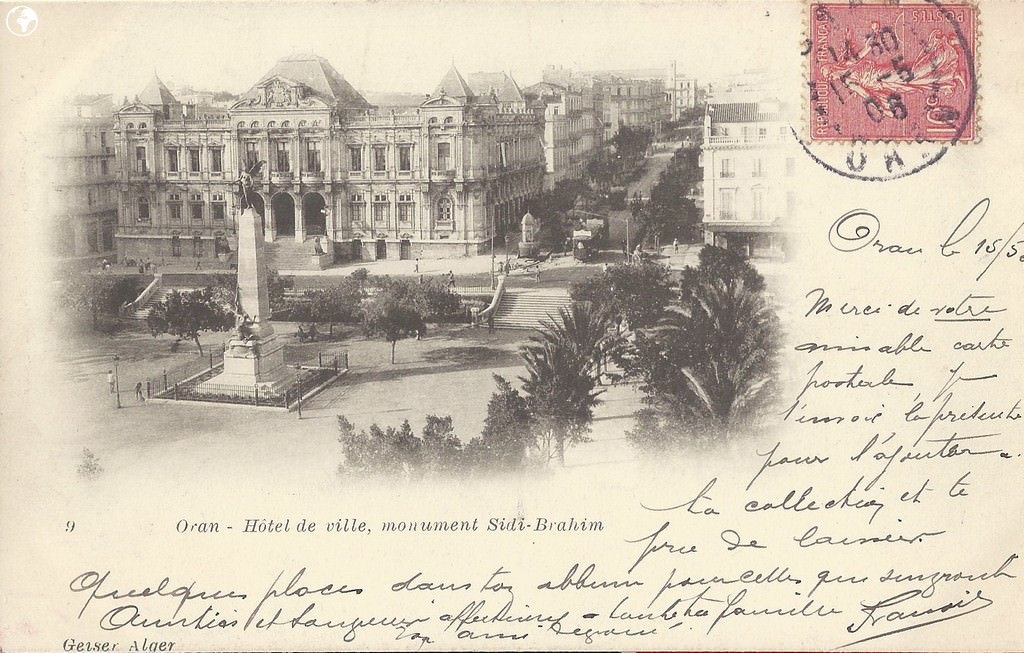 REPUBLIQUE FRANÇAISE
POSTES
10c
14 30
15 -5
05
ORAN
Oran le 15/5
Merci de votre
aimable carte
postale je
t'envoi la présente
pour l'ajouter a
ta collection et te
prie de laisser
Quelques places dans ton album pour celles que suivront
Amitiés et affectueux a toute ta famille
Ton ami
9 Oran - Hôtel de ville, monument Sidi-Brahim
Geiser Alger